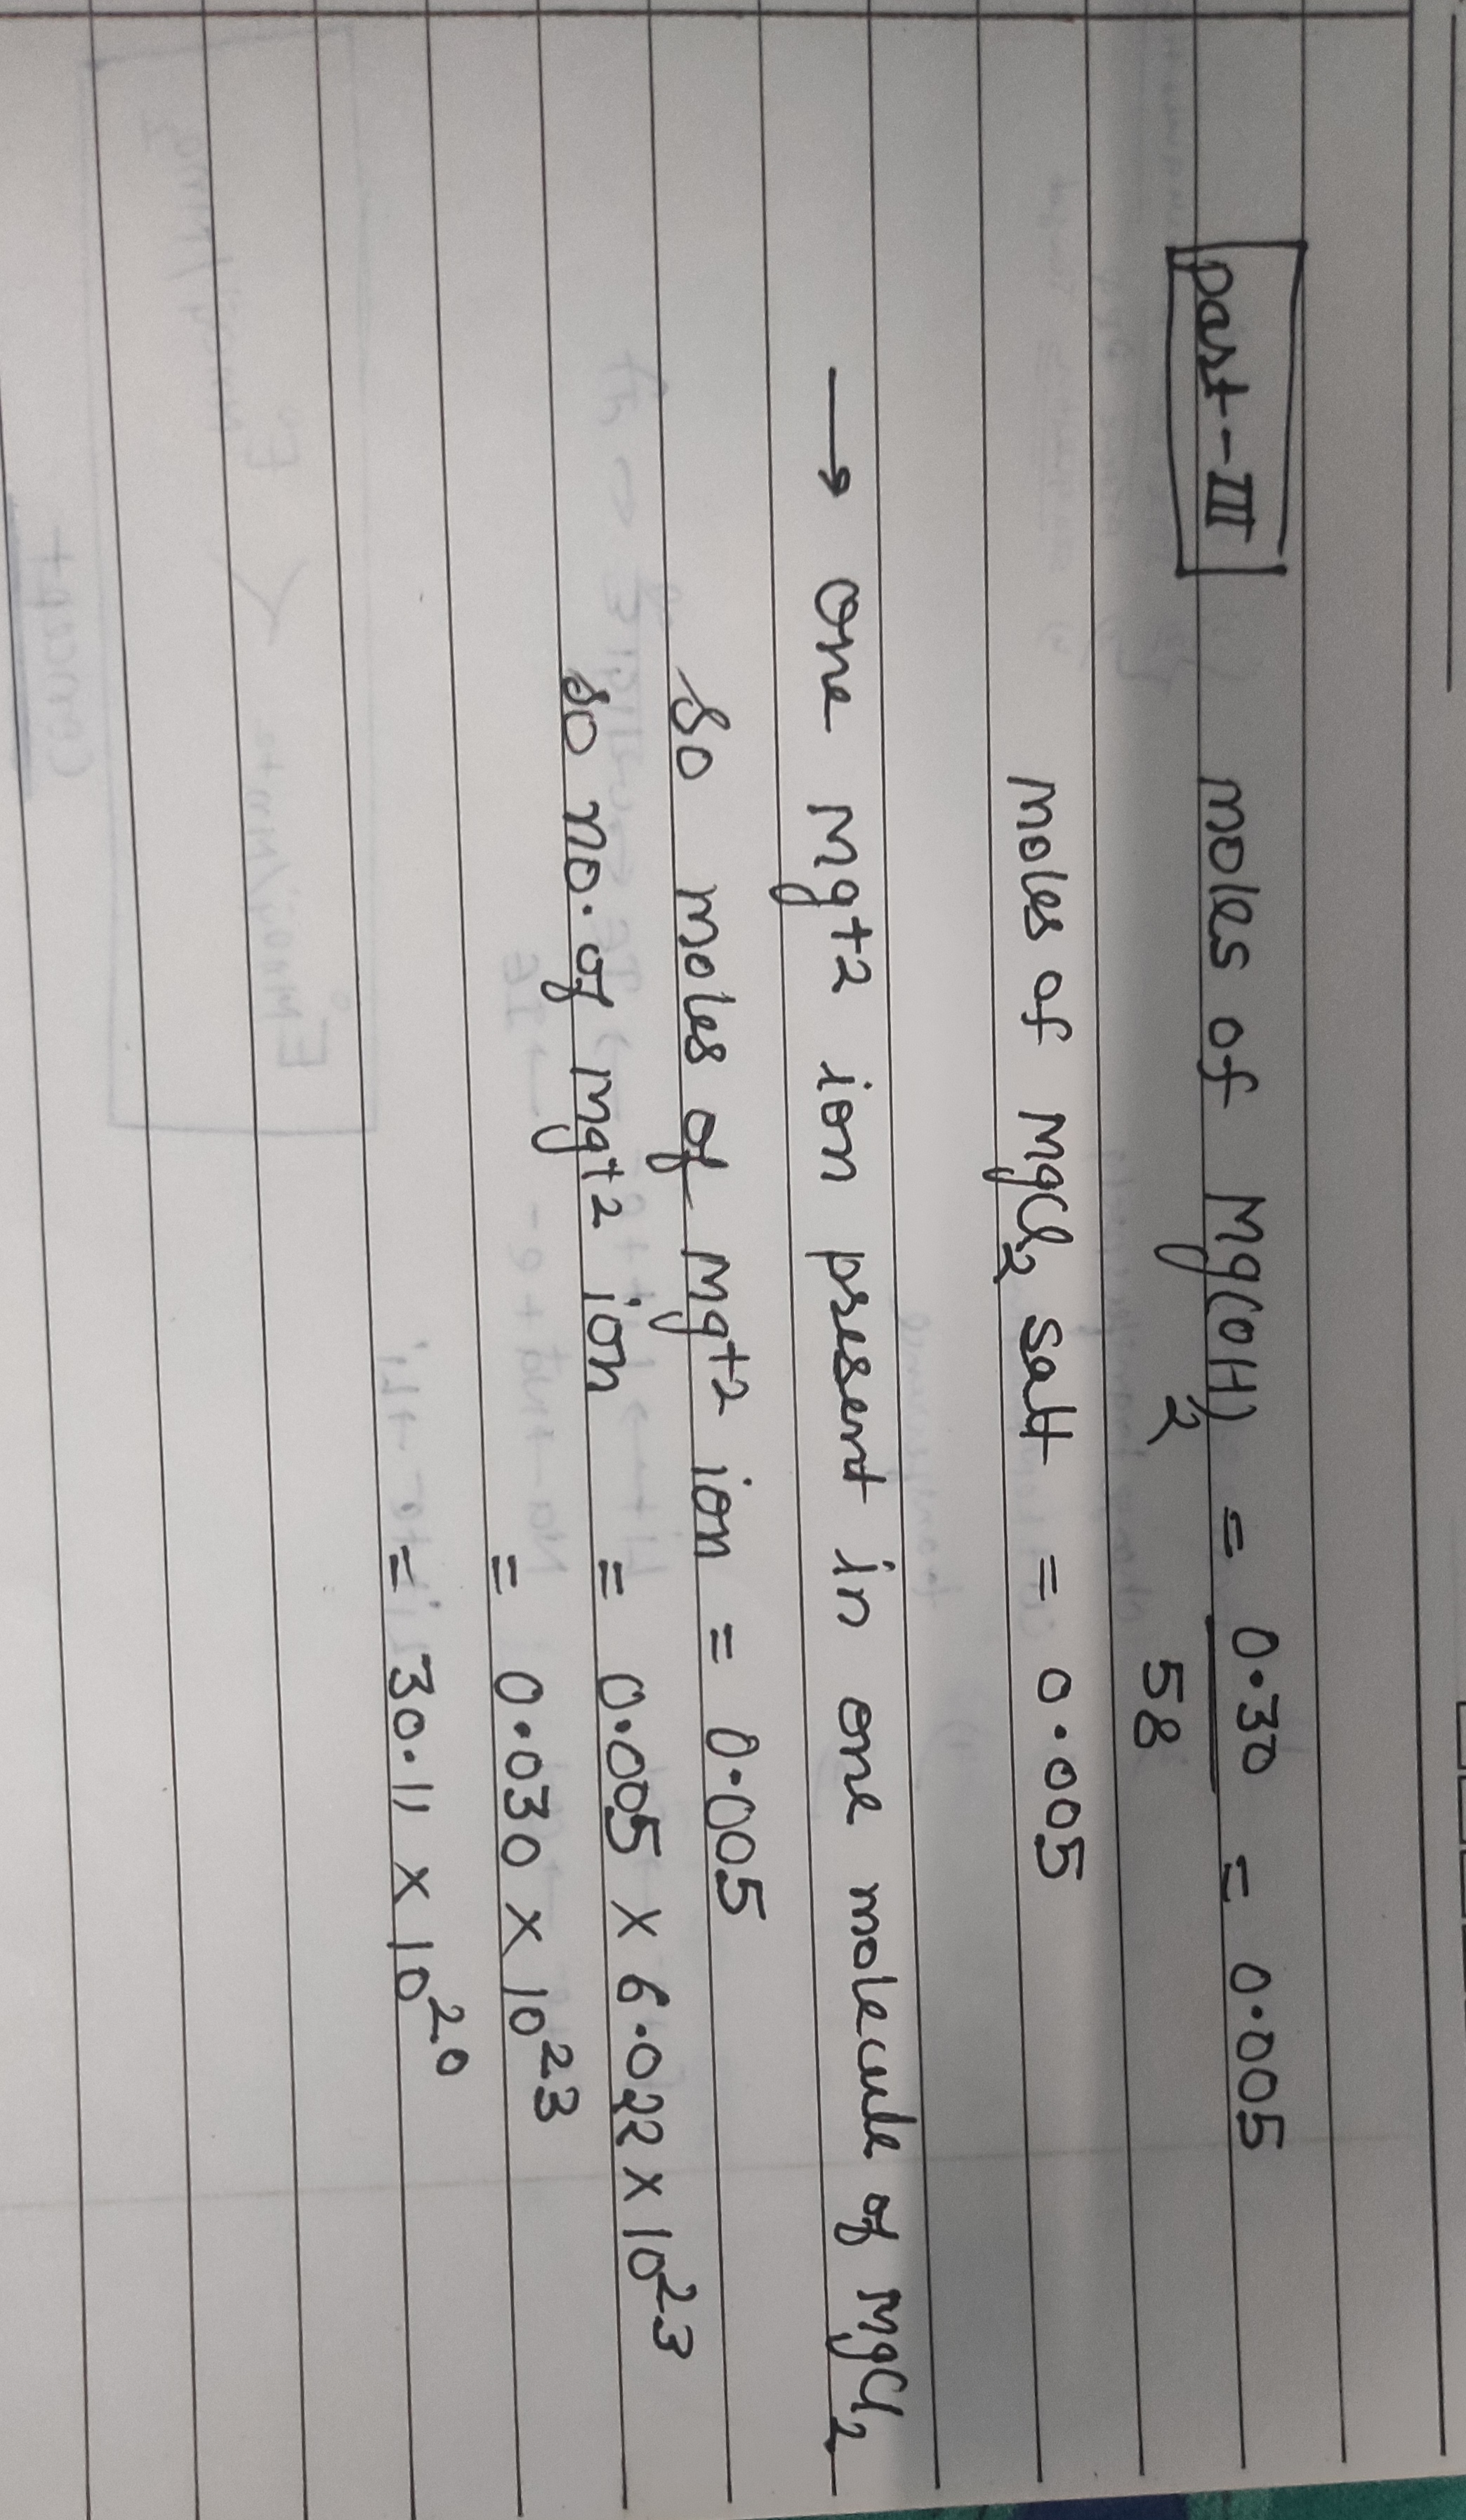 part-III moles of Mg(OH)2 = 0.30/58 = 0.005
moles of MgCl2 salt = 0.005
→ one Mg+2 ion present in one molecule of MgCl2
so moles of Mg+2 ion = 0.005
so no. of Mg+2 ion = 0.005 × 6.022 × 10^23
= 0.030 × 10^23
= 30.11 × 10^20